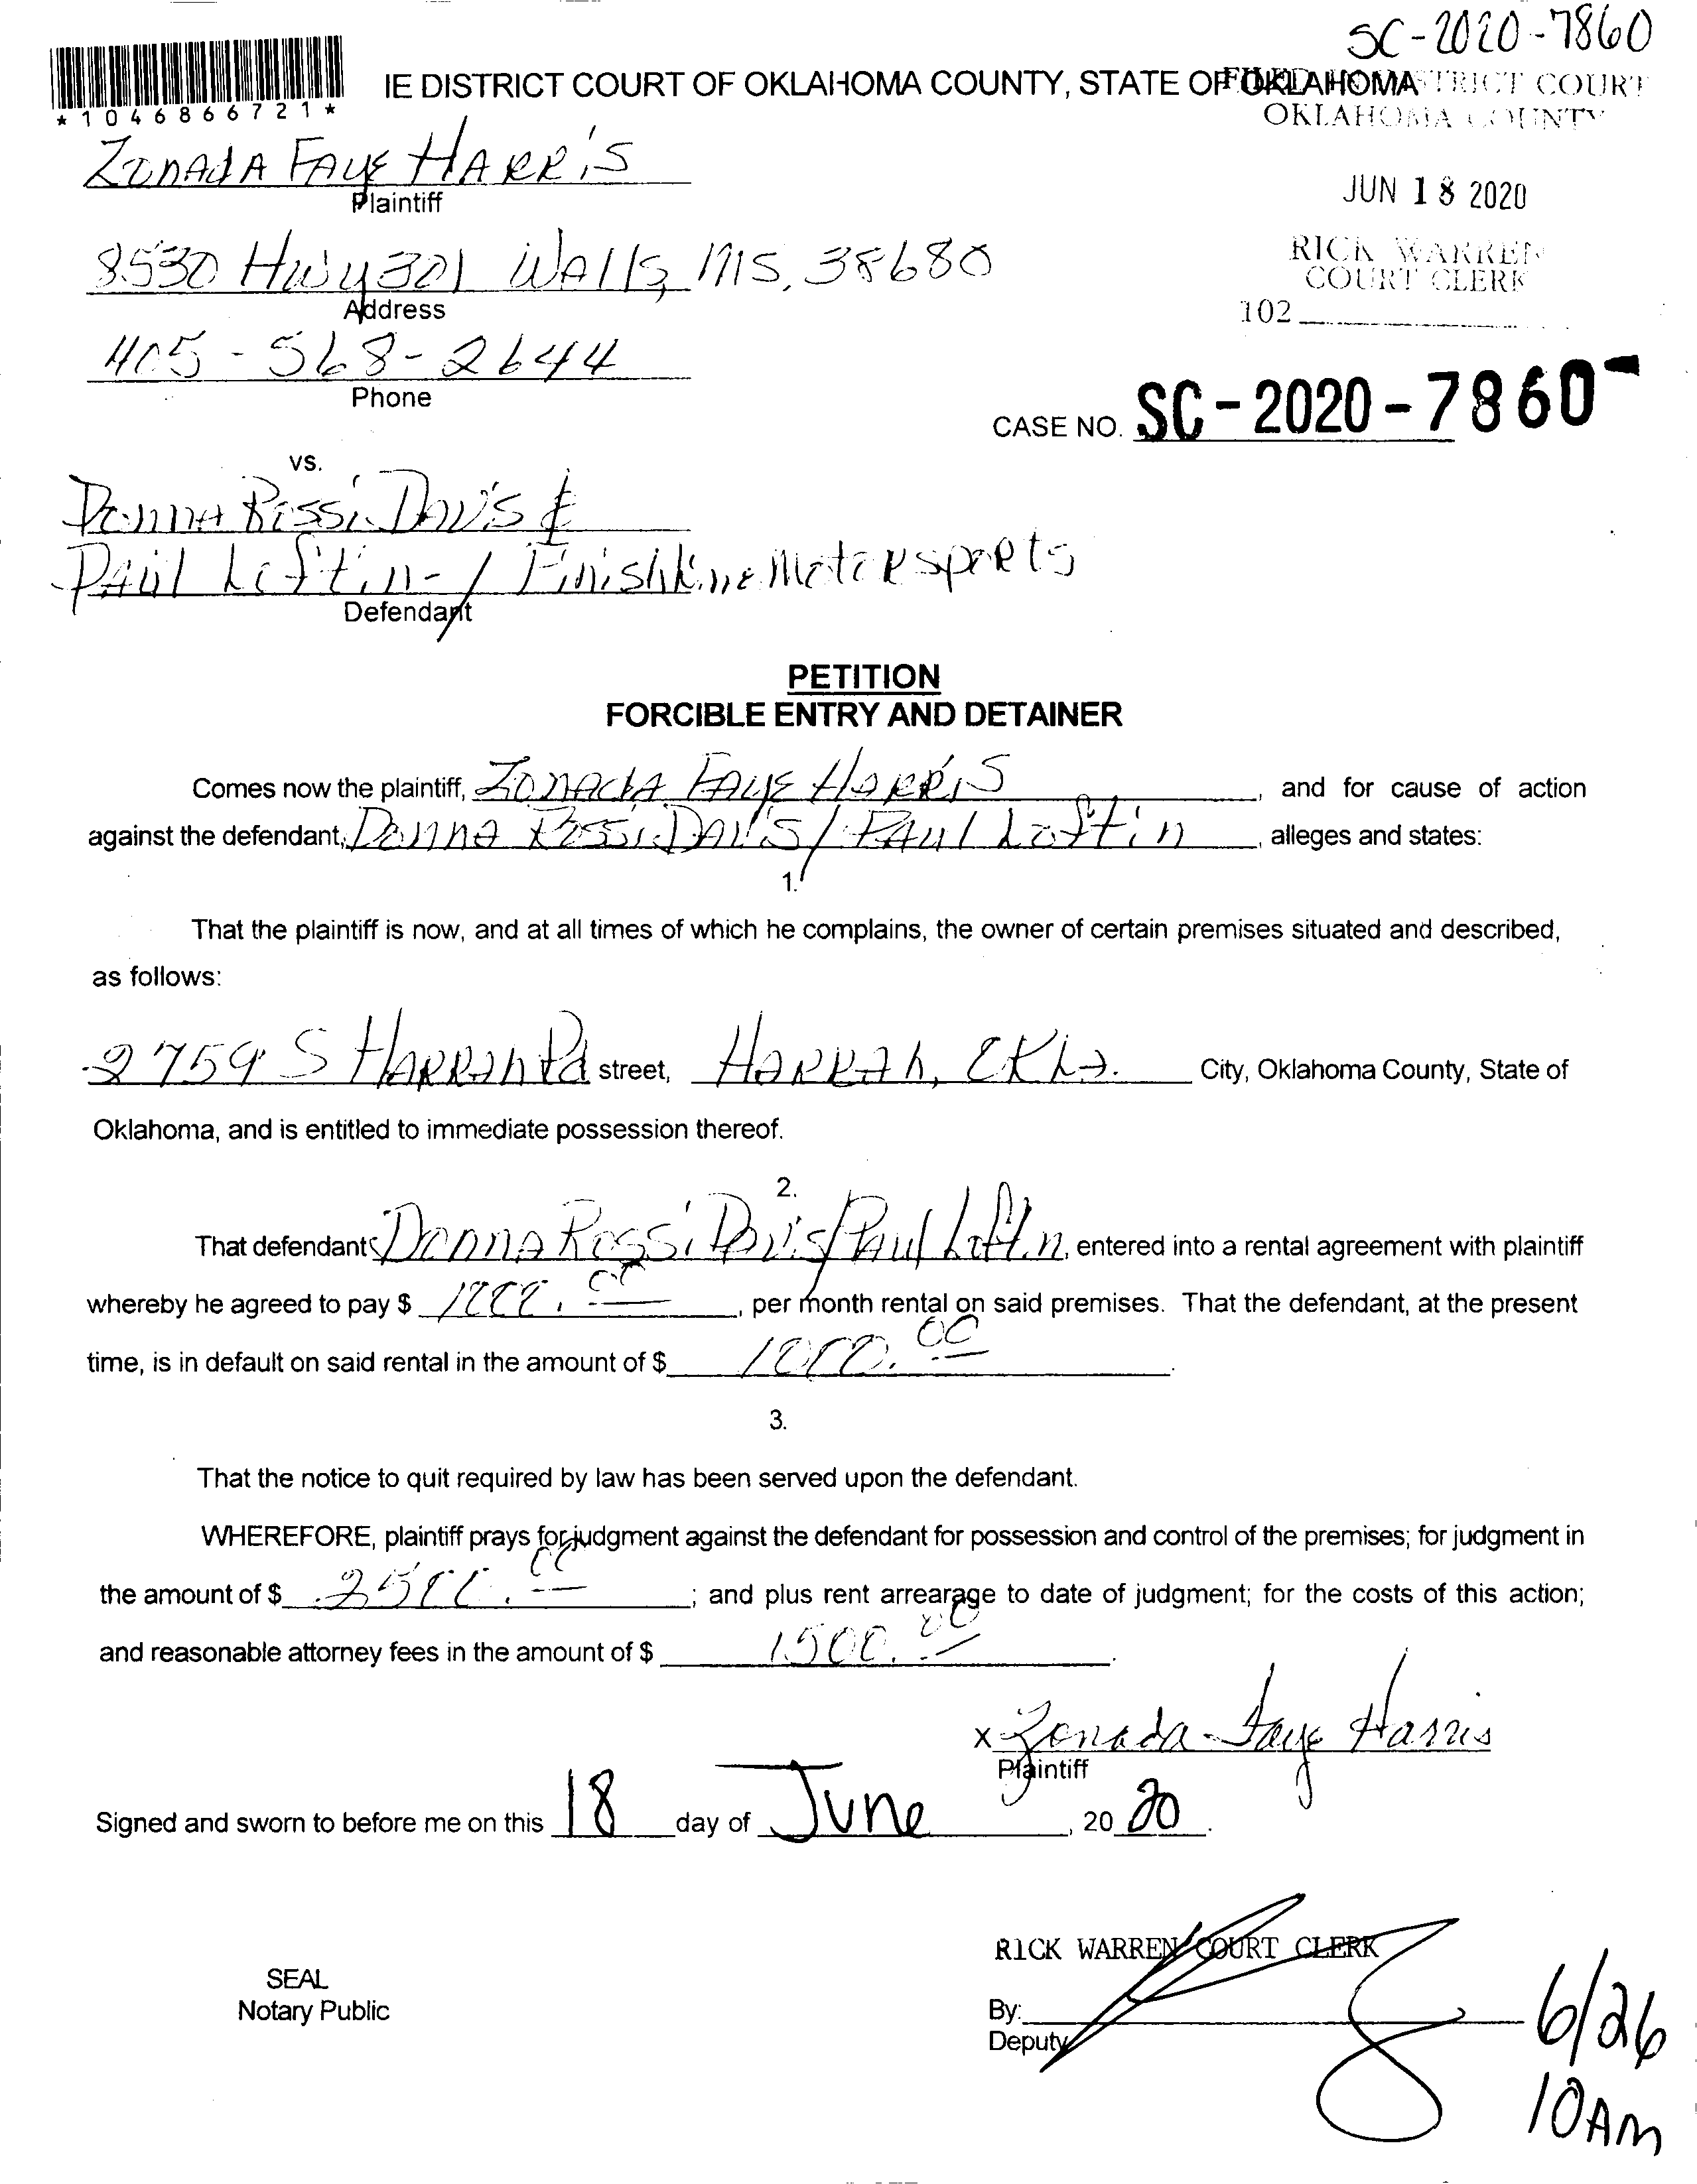 SC-2020-7860
IE DISTRICT COURT OF OKLAHOMA COUNTY, STATE OF OKLAHOMA
FILED IN DISTRICT COURT
OKLAHOMA COUNTY
*1046866721*
ZONADA FAYE HARRIS
Plaintiff
JUN 18 2020
8530 Hwy 301 WAllS, MIS. 38680
Address
RICK WARREN
COURT CLERK
102
405-568-2644
Phone
CASE NO. SC-2020-7860
vs.
DONNA ROSSi DAViS &
PAUl Loftin-/FinishLine MotoRspoRts
Defendant
PETITION
FORCIBLE ENTRY AND DETAINER
Comes now the plaintiff, ZONAdA FAYE HARRiS, and for cause of action
against the defendant, DONNA ROSSi DAViS/PAUl Loftin, alleges and states:
1.
That the plaintiff is now, and at all times of which he complains, the owner of certain premises situated and described,
as follows:
2759 S HARRAh Rd street, HARRAh, OKLA. City, Oklahoma County, State of
Oklahoma, and is entitled to immediate possession thereof.
2.
That defendant DONNA ROSSi DAViS/PAUl Loftin, entered into a rental agreement with plaintiff
whereby he agreed to pay $ 1000.00, per month rental on said premises. That the defendant, at the present
time, is in default on said rental in the amount of $ 1000.00.
3.
That the notice to quit required by law has been served upon the defendant.
WHEREFORE, plaintiff prays for judgment against the defendant for possession and control of the premises; for judgment in
the amount of $ 2500.00; and plus rent arrearage to date of judgment; for the costs of this action;
and reasonable attorney fees in the amount of $ 1500.00.
x Zonada Faye Harris
Plaintiff
Signed and sworn to before me on this 18 day of June, 20 20.
RICK WARREN COURT CLERK
SEAL
Notary Public
By:
Deputy
6/26
10AM